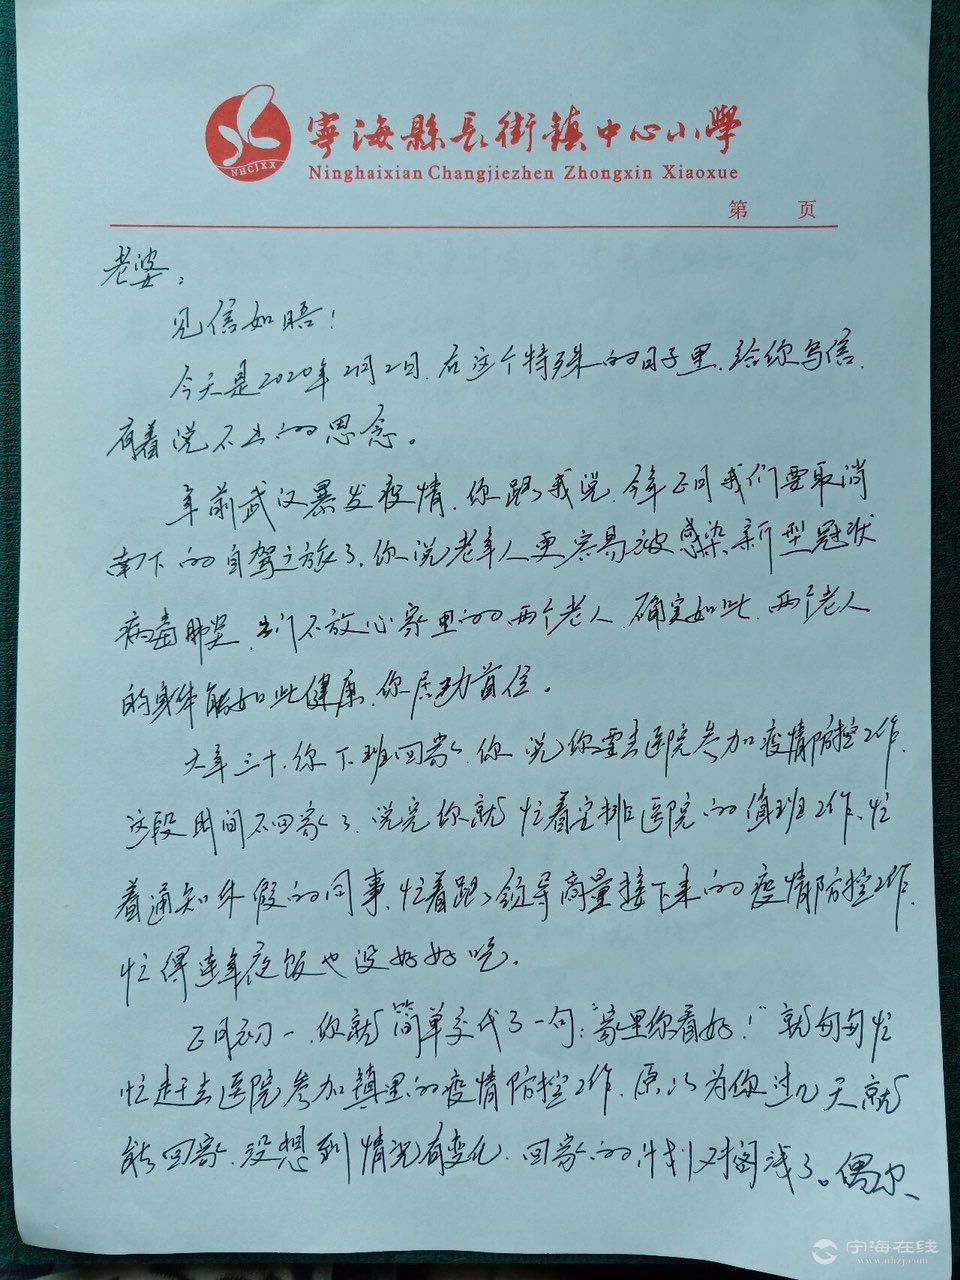 寧海縣長街鎮中心小學
NHCJXX
Ninghaixian Changjiezhen Zhongxin Xiaoxue
第 页
老婆：
见信如晤！
今天是2020年2月2日，在这个特殊的日子里，给你写信，
有着说不出的思念。
年前武汉暴发疫情，你跟我说，今年正月我们要取消
南下的自驾之旅了，你说老年人更容易被感染新型冠状
病毒肺炎，出门不放心家里的两个老人，确实如此，两个老人
的身体能如此健康，你居功首位。
大年三十，你下班回家，你说你要去医院参加疫情防控工作，
这段时间不回家了，说完你就忙着安排医院的值班工作，忙
着通知休假的同事，忙着跟领导商量接下来的疫情防控工作，
忙得连年夜饭也没好好吃。
正月初一，你就简单交代了一句：“家里你看好！”就匆匆忙
忙赶去医院参加镇里的疫情防控工作，原以为你过几天就
能回家，没想到情况有变化，回家的计划又搁浅了。偶尔、
宁海在线
www.nhzj.com